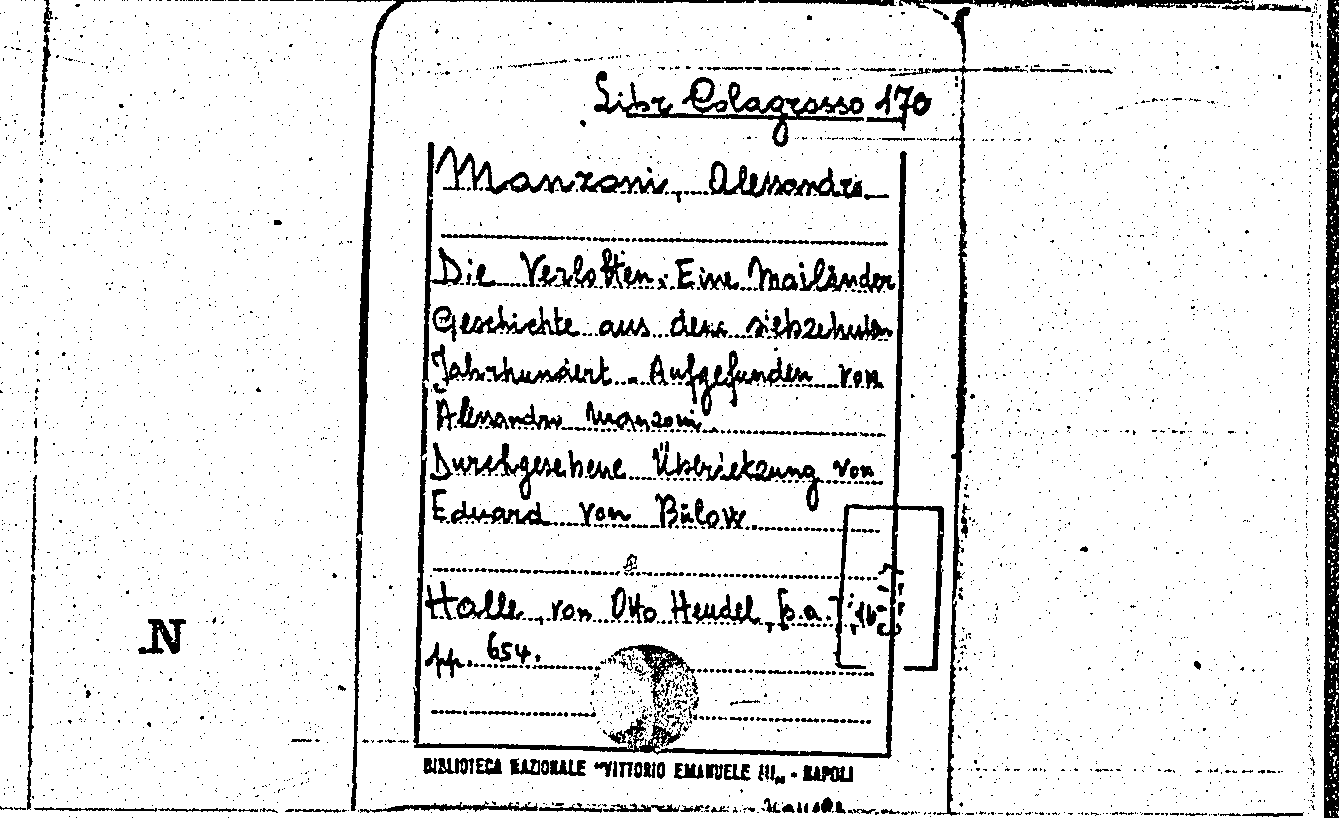 Libr Colagrosso 170
Manzoni, Alessandro
Die Verlobten. Eine Mailänder
Geschichte aus dem siebzehnten
Jahrhundert. Aufgefunden von
Alessandro Manzoni
Durchgesehene Übersetzung von
Eduard von Bülow
Halle, von Otto Hendel, [s.a.] 16°
pp. 654.
N
BIBLIOTECA NAZIONALE "VITTORIO EMANUELE III„ - NAPOLI